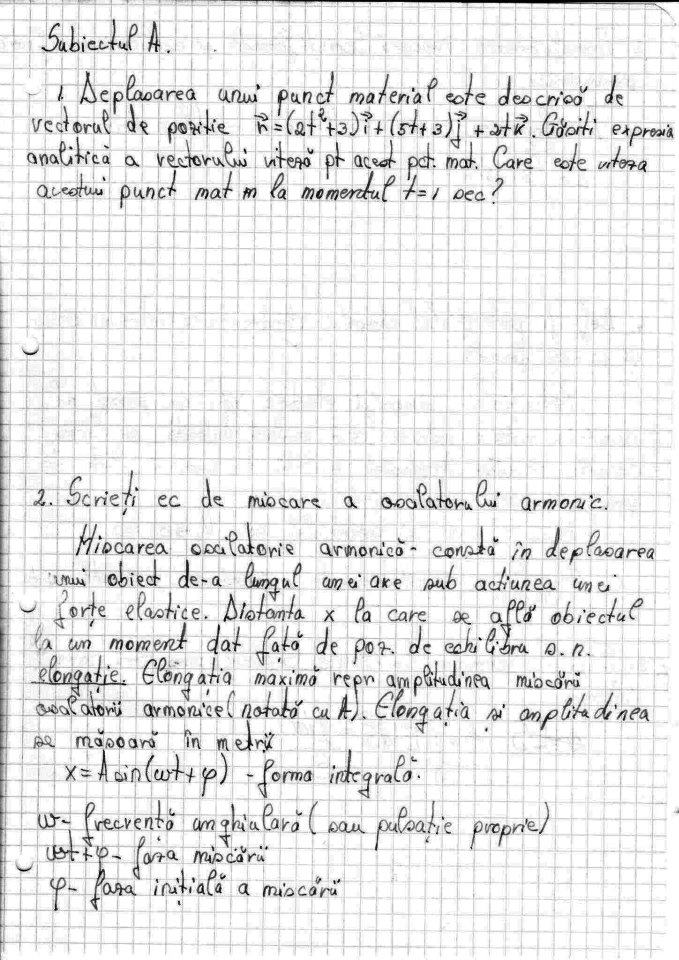 Subiectul A.
1. Deplasarea unui punct material este descrisă de
vectorul de pozitie r⃗=(2t²+3)i⃗+(5t+3)j⃗+2tk⃗. Găsiti expresia
analitică a vectorului viteză pt acest pct. mat. Care este viteza
acestui punct mat m la momentul t=1 sec?
2. Scrieți ec de miscare a oscilatorului armonic.
Miscarea oscilatorie armonică - constă în deplasarea
unui obiect de-a lungul unei axe sub actiunea unei
forțe elastice. Distanta x la care se află obiectul
la un moment dat față de poz. de echilibru s.n.
elongație. Elongația maximă repr amplitudinea miscării
oscilatorii armonice (notată cu A). Elongația și amplitudinea
se măsoară în metrii
x=Asin(ωt+φ) - forma integrală.
ω- frecventă anghiulară (sau pulsație proprie)
ωt+φ- faza miscării
φ- faza inițială a miscării